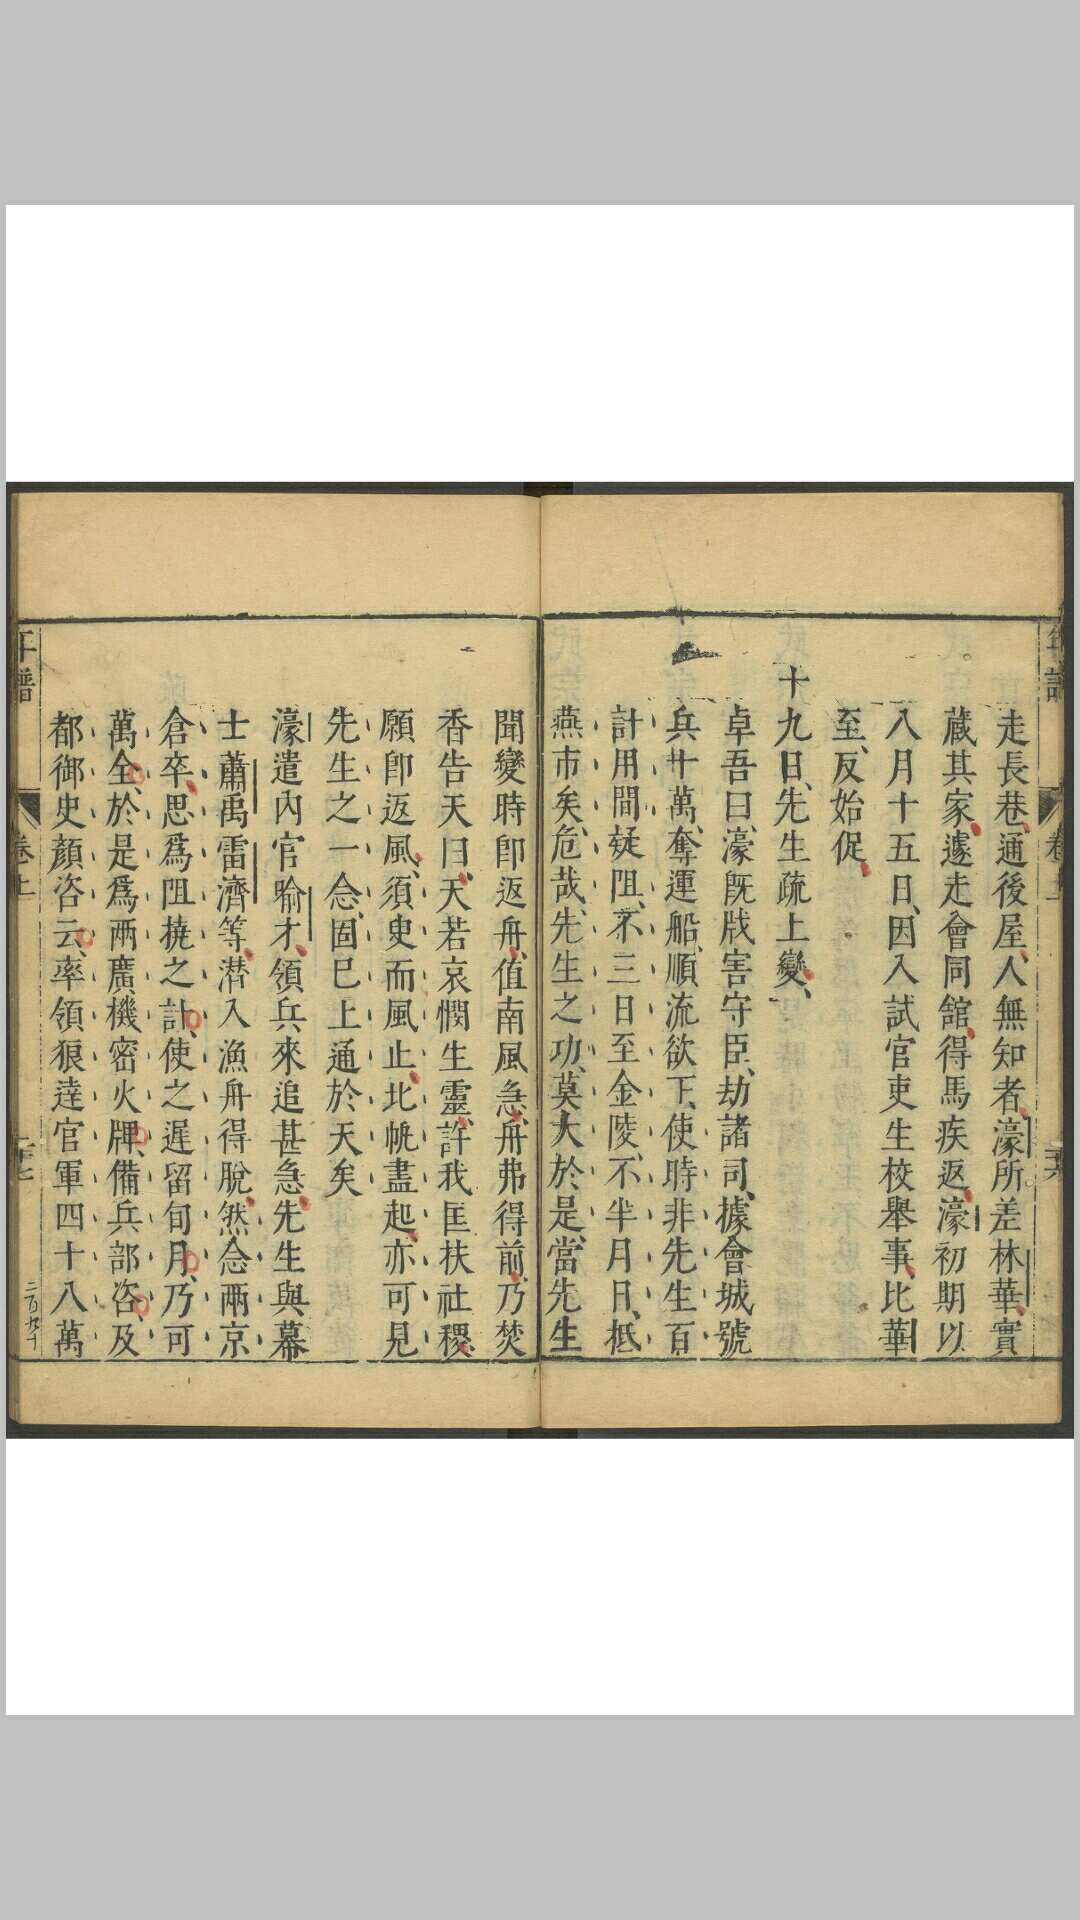 走長巷、通後屋、人無知者、濠所差林華、實
蔵其家、遽走會同舘、得馬疾返、濠初期以
八月十五日、因入試官吏生校舉事、比華
至、反始促、
十九日、先生疏上變、
卓吾曰、濠既戕害守臣、劫諸司、據會城、號
兵十萬、奪運船、順流欲下、使時非先生百
計用間疑阻、不三日至金陵、不半月日、抵
燕市矣、危哉、先生之功、莫大於是、當先生
聞變時卽返舟、值南風急、舟弗得前、乃焚
香告天曰、天若哀憫生靈、許我匡扶社稷、
願卽返風、須臾而風止、北帆盡起、亦可見
先生之一念、固已上通於天矣
濠遣內官喻才、領兵來追甚急、先生與幕
士蕭禹雷濟等、潛入漁舟得脫、然念兩京
倉卒、思爲阻撓之計、使之遲留旬月、乃可
萬全、於是爲兩廣機密火牌、備兵部咨、及
都御史顏咨云、率領狼達官軍四十八萬
年譜
卷上